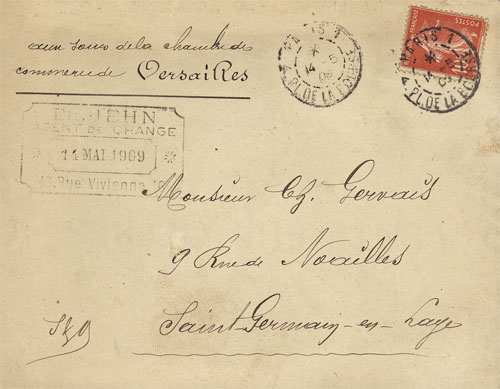 aux soins de la chambre de
commerce de Versailles
PARIS 1
14 5
PL. DE LA BOURSE
PARIS 1
PL. DE LA BOURSE
POSTES
JEHN
AGENT DE CHANGE
14 MAI 1909
Rue Vivienne
Monsieur Ch. Gervais
9 Rue de Noailles
Saint Germain-en-Laye